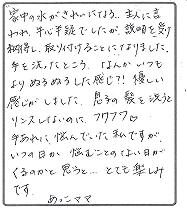 家中の水がきれいになる。主人に言
われ、半心半疑でしたが、説明を受け
納得し、取り付けることになりました。
手を洗ったところ、なんかいつも
よりぬるぬるした感じ?! 優しい
感じがしました。息子の髪を洗うと
リンスしないのに、フワフワ
手あれに悩んでいた私ですが、
いつの日か、悩むことのない日が
くるのかと思うと… とても楽しみ
です。
あっこママ